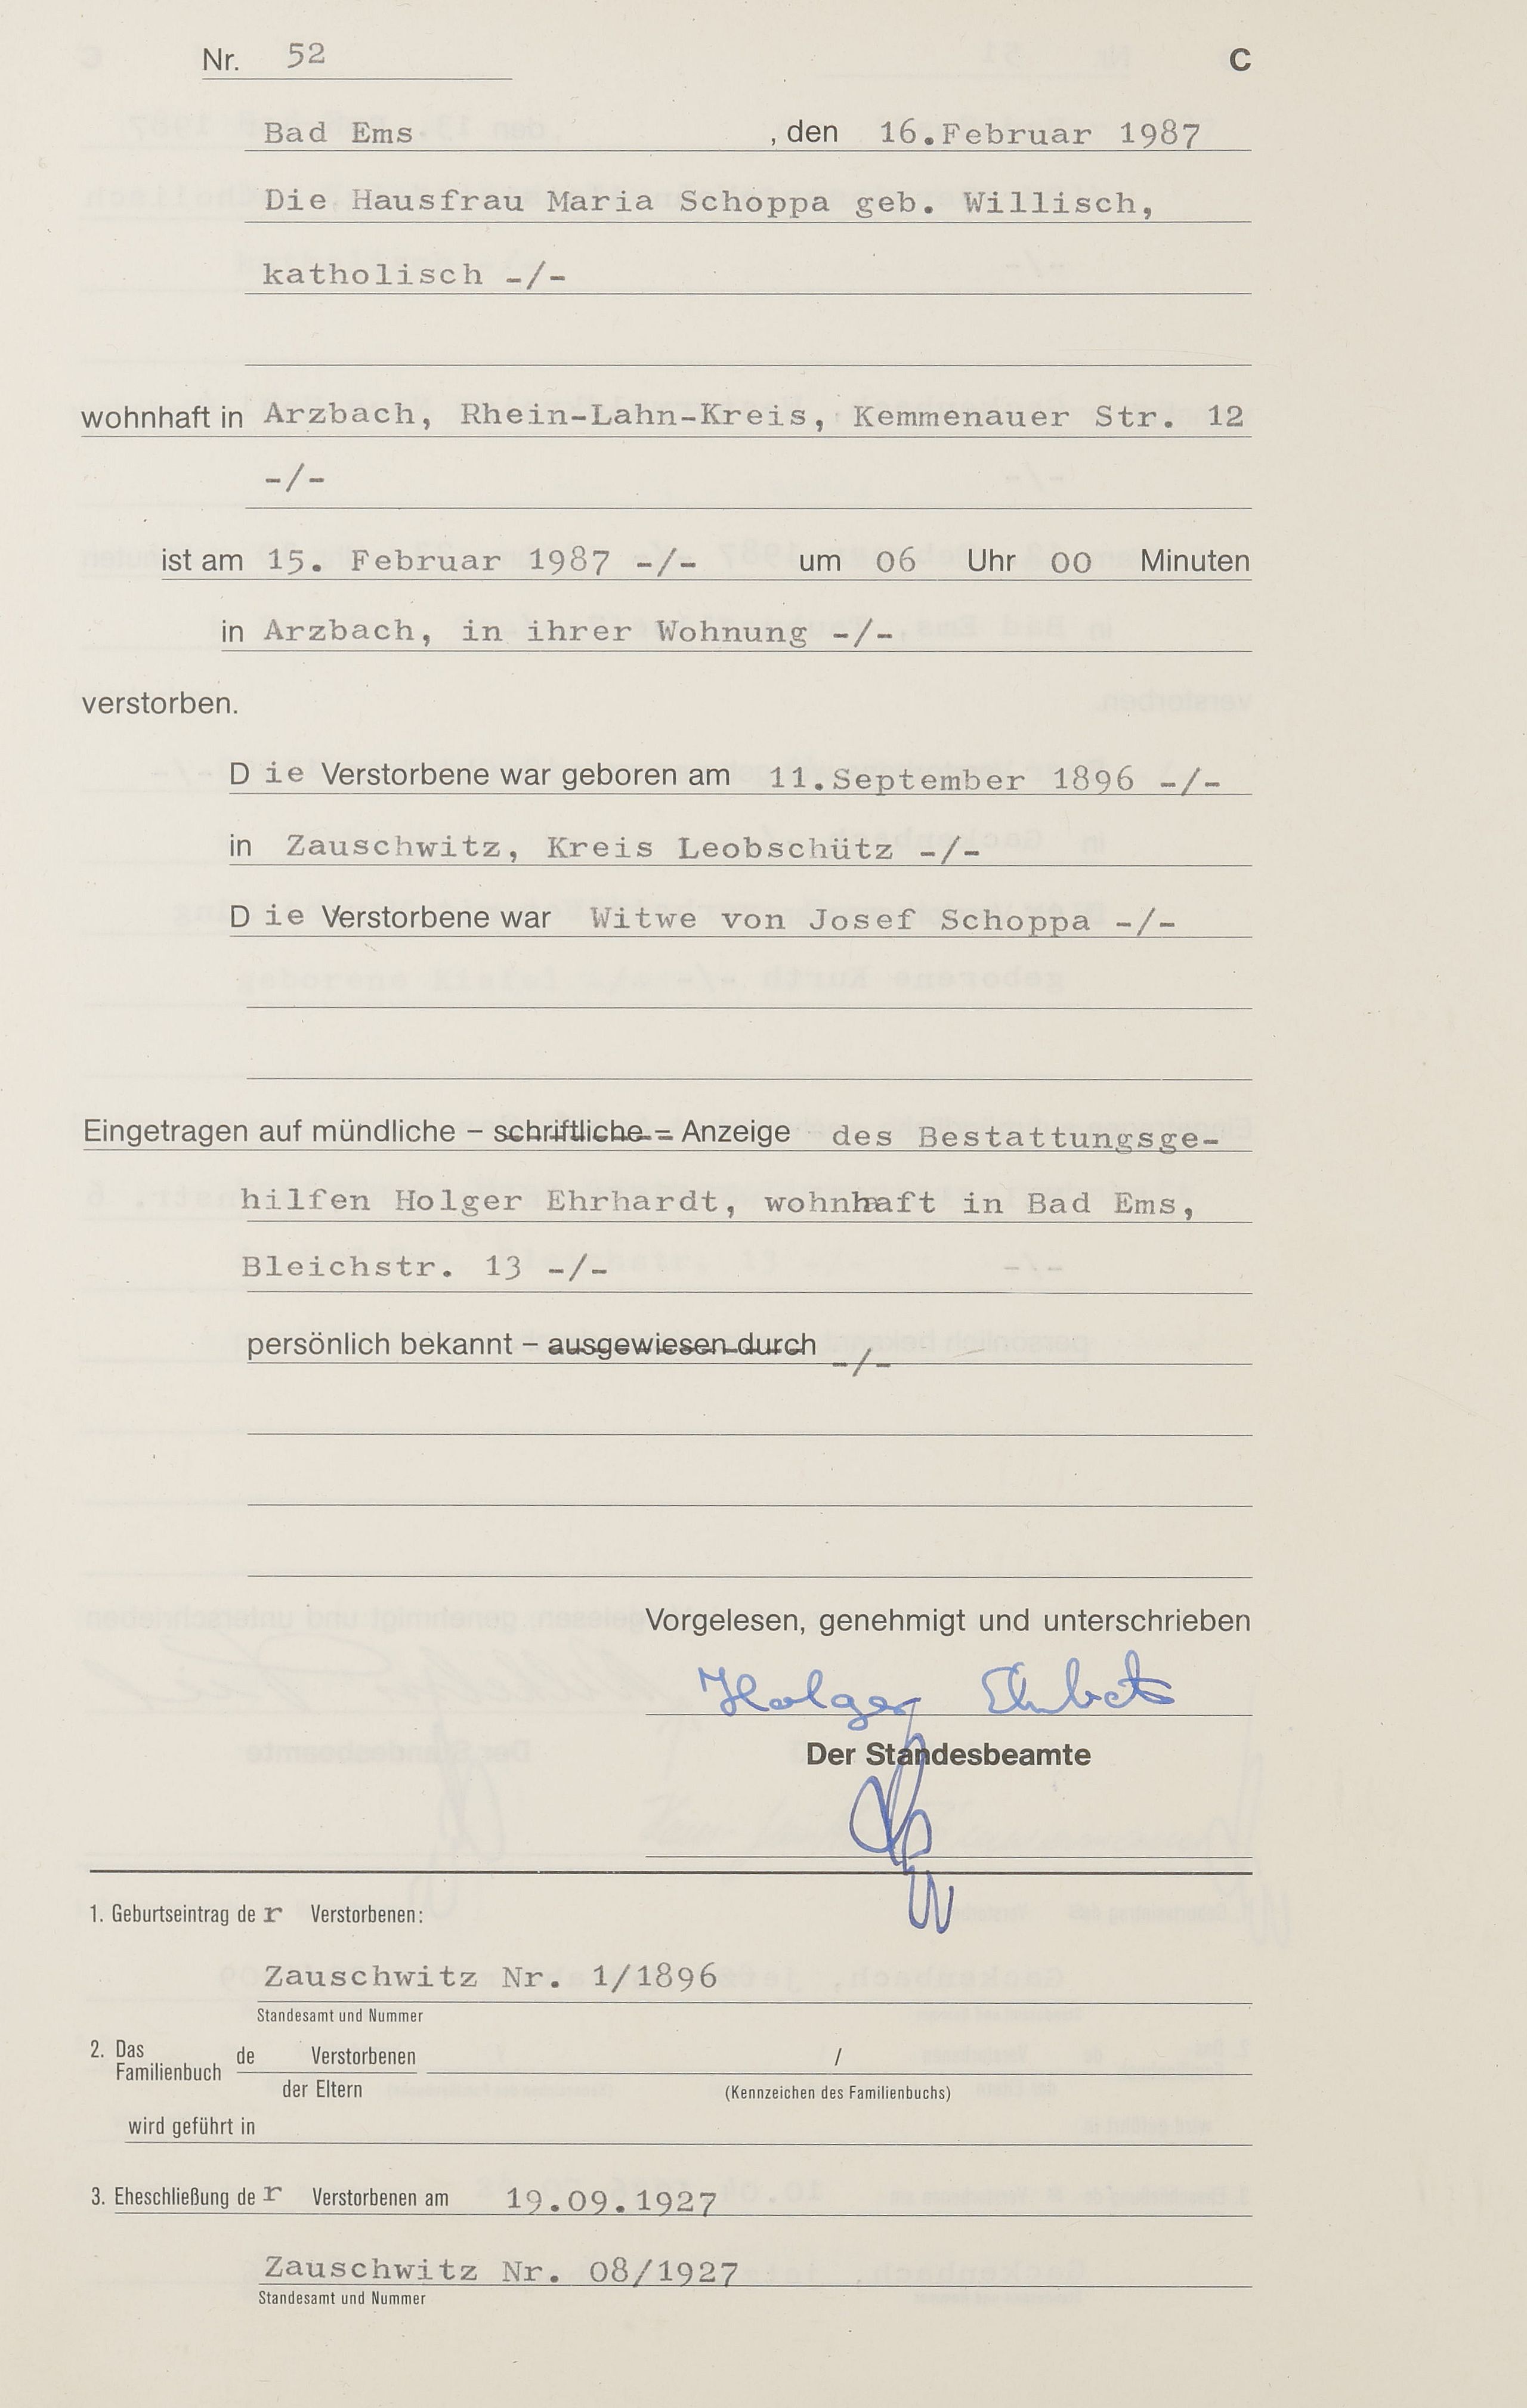 Nr. 52 C
Bad Ems , den 16.Februar 1987
Die Hausfrau Maria Schoppa geb. Willisch,
katholisch -/-
wohnhaft in Arzbach, Rhein-Lahn-Kreis, Kemmenauer Str. 12
-/-
ist am 15. Februar 1987 -/- um 06 Uhr 00 Minuten
in Arzbach, in ihrer Wohnung -/-
verstorben.
Die Verstorbene war geboren am 11.September 1896 -/-
in Zauschwitz, Kreis Leobschütz -/-
Die Verstorbene war Witwe von Josef Schoppa -/-
Eingetragen auf mündliche – schriftliche – Anzeige des Bestattungsge-
hilfen Holger Ehrhardt, wohnhaft in Bad Ems,
Bleichstr. 13 -/-
persönlich bekannt – ausgewiesen durch -/-
Vorgelesen, genehmigt und unterschrieben
Holger
Der Standesbeamte
1. Geburtseintrag der Verstorbenen:
Zauschwitz Nr. 1/1896
Standesamt und Nummer
2. Das Familienbuch de Verstorbenen /
der Eltern (Kennzeichen des Familienbuchs)
wird geführt in
3. Eheschließung der Verstorbenen am 19.09.1927
Zauschwitz Nr. 08/1927
Standesamt und Nummer